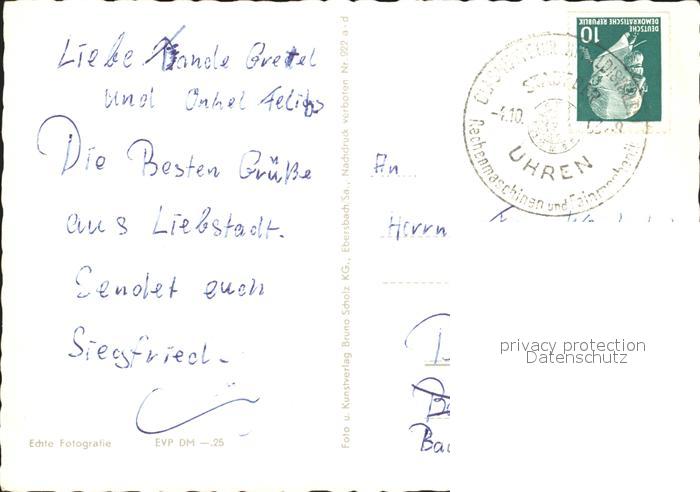 Liebe Tande Gretel
und Onkel Felix
Die Besten Grüße
aus Liebstadt.
Sendet euch
Siegfried.
Echte Fotografie EVP DM —.25
Foto u. Kunstverlag Bruno Scholz KG., Ebersbach Sa., Nachdruck verboten Nr. 092 a-d
DEUTSCHE
DEMOKRATISCHE REPUBLIK
10
STADT
-4.10.
UHREN
Rechenmaschinen und Feinmechanik
An
Herrn
privacy protection
Datenschutz